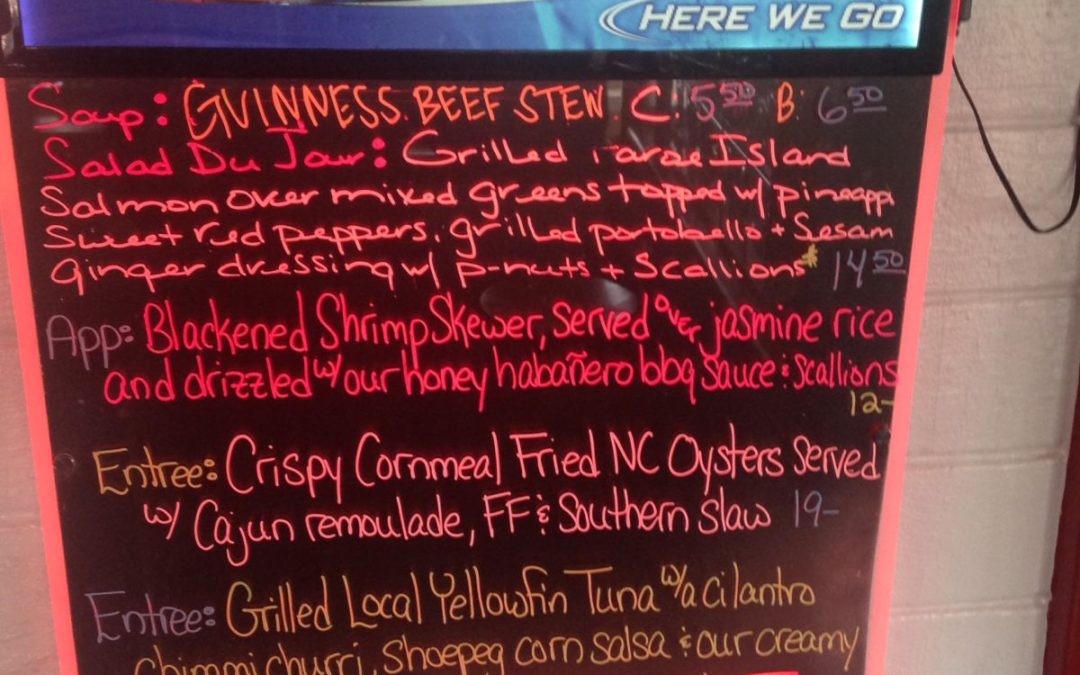 HERE WE GO
Soup: GUINNESS BEEF STEW. C. 5 50 B: 6 50
Salad Du Jour: Grilled Faroe Island
Salmon over mixed greens topped w/ pineappl
Sweet red peppers, grilled portobello + Sesam
ginger dressing w/ p-nuts + Scallions* 14 50
App: Blackened Shrimp Skewer, served over jasmine rice
and drizzled w/ our honey habañero bbq sauce & scallions
12-
Entree: Crispy Cornmeal Fried NC Oysters served
w/ Cajun remoulade, FF & Southern slaw 19-
Entree: Grilled Local Yellowfin Tuna w/a cilantro
chimmichurri, shoepeg corn salsa & our creamy